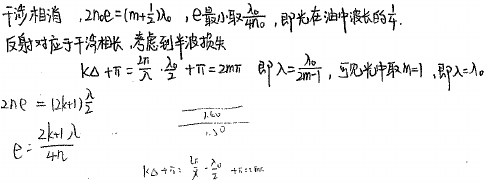 干涉相消 , 2n₀e = (m+½)λ₀ , e最小取 λ₀/4n₀ , 即光在油中波长的 1/4.
反射对应于干涉相长, 考虑到半波损失
kΔ + π = 2π/λ · λ₀/2 + π = 2mπ 即 λ = λ₀/2m-1 , 可见光中取m=1 , 即λ=λ₀
2ne = (2k+1) λ/2
1.60
1.50
e = 2k+1 λ/4n
kΔ + π = 2π/λ · λ₀/2 + π = 2mπ